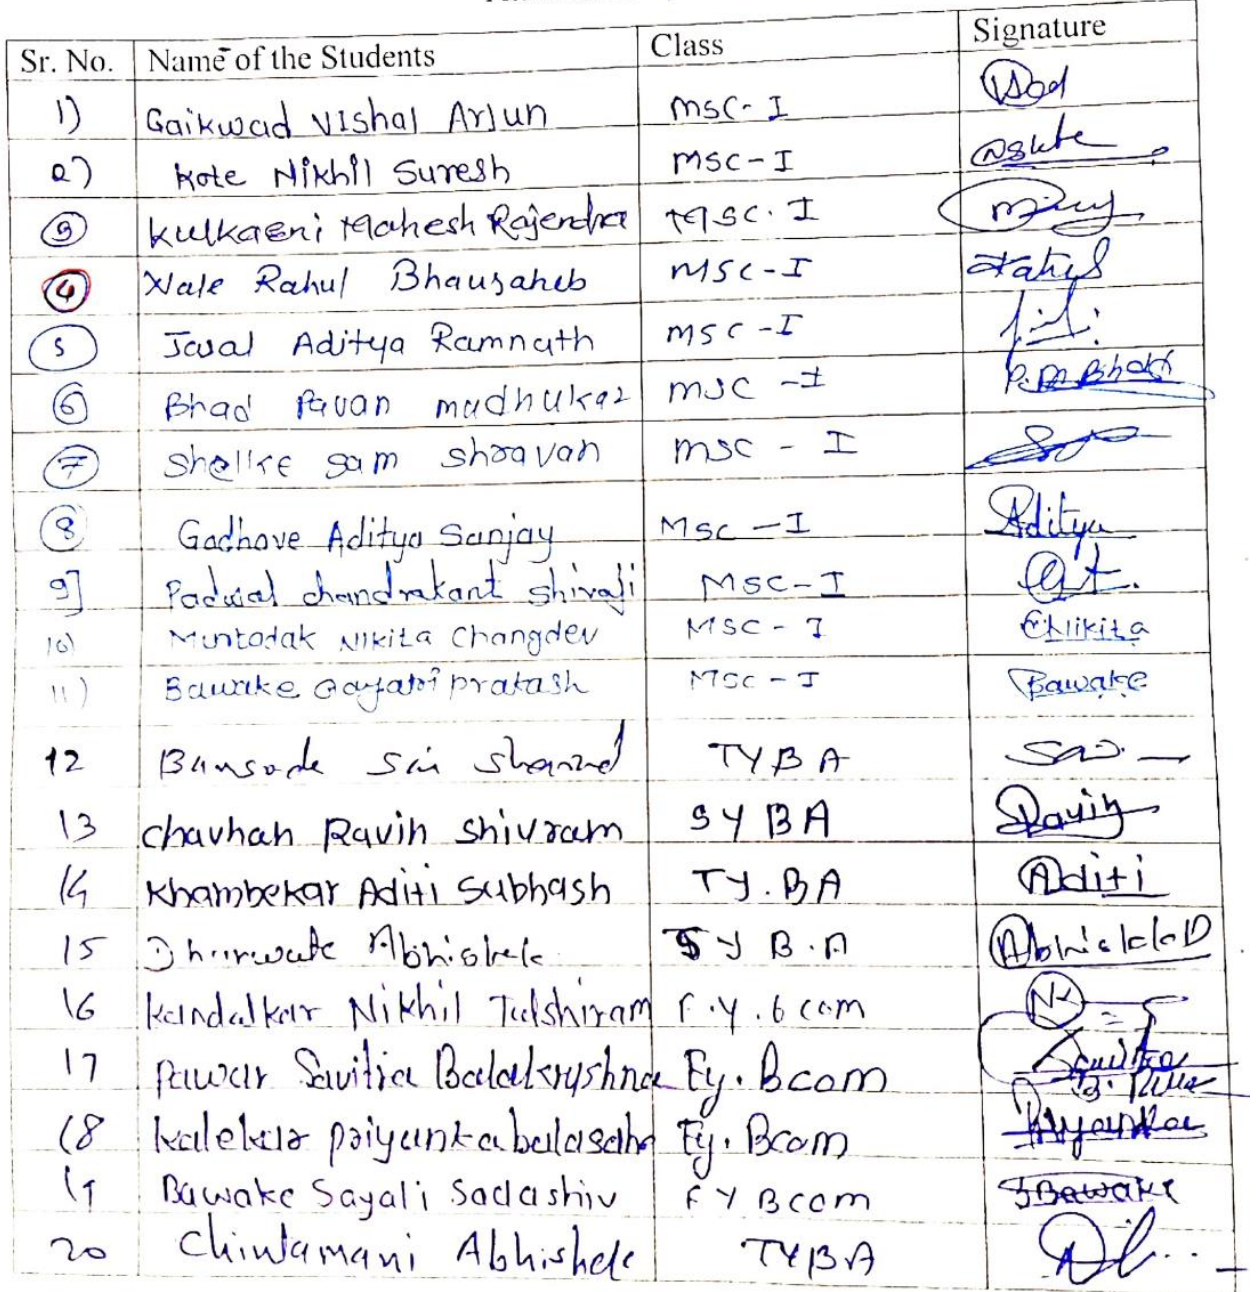 Sr. No. Name of the Students Class Signature
1) Gaikwad Vishal Arjun MSC-I
2) Kote Nikhil Suresh MSC-I nskote
3 Kulkarni Mahesh Rajendra MSC. I
4 Nale Rahul Bhausaheb MSC-I Rahul
5 Javal Aditya Ramnath MSC-I
6 Bhad Pavan madhukar MSC-I P.M Bhad
7 Shelke Sam Shravan MSC - I
8 Gadhave Aditya Sanjay Msc-I Aditya
9] Padwal chandrakant Shivaji MSC-I
10) Nikita Changdev MSC-I Nikita
11) Bawake Gayatri prakash MSC-I Bawake
12 Bansode Sai TYBA Sai
13 Chavhan Ravin Shivram SYBA Ravin
14 Khambekar Aditi Subhash TY.BA Aditi
15 Abhishek SY B.A Abhishek D
16 Kandalkar Nikhil Tulshiram F.Y.Bcom NK
17 Pawar Savitra Balakryshna Fy.Bcom Savitra
18 kalekar priyanka balasahe Fy.Bcom Priyanka
19 Bawake Sayali Sadashiv FYBcom SBawake
20 Chintamani Abhishek TYBA